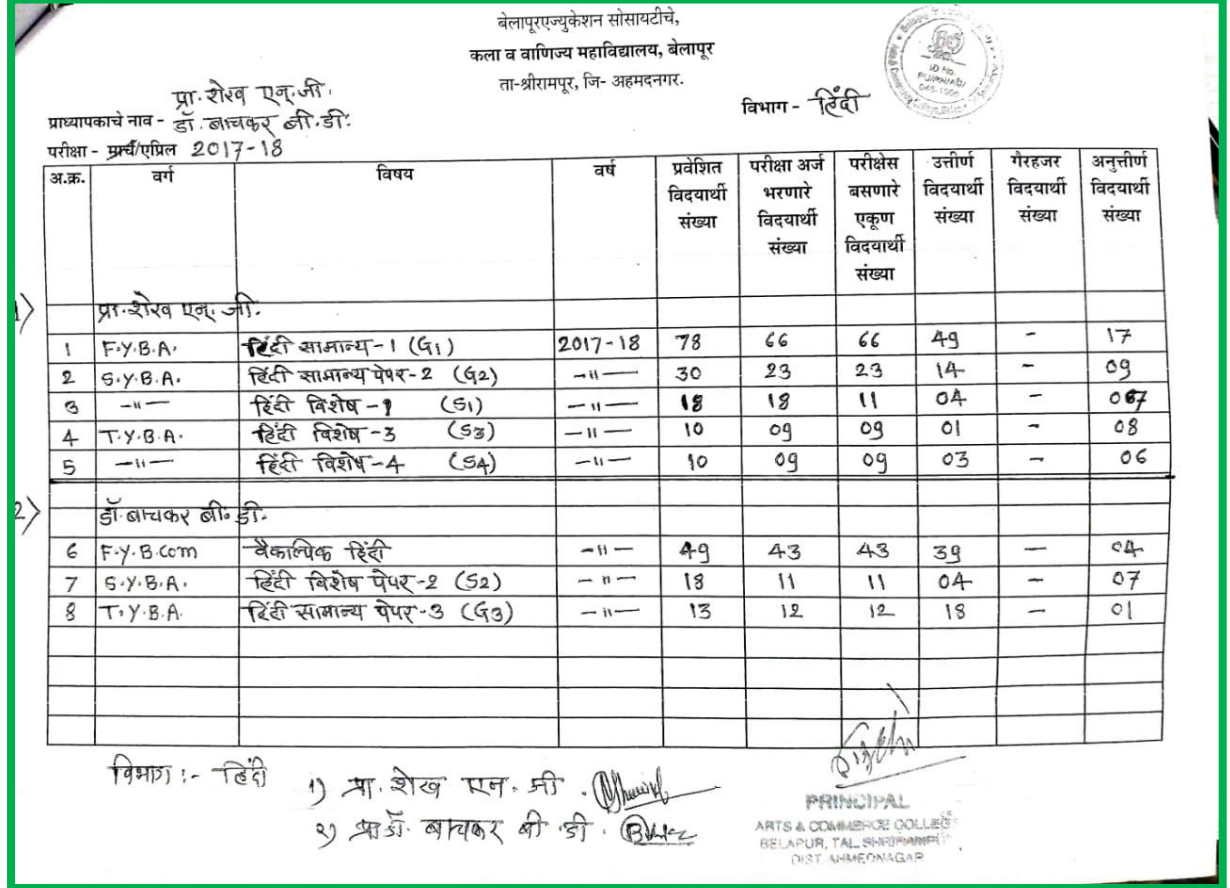 बेलापूरएज्युकेशन सोसायटीचे,
कला व वाणिज्य महाविद्यालय, बेलापूर
ता-श्रीरामपूर, जि- अहमदनगर.
प्रा. शेख एन्.जी.
प्राध्यापकाचे नाव - डॉ. बाचकर बी.डी.
विभाग - हिंदी
परीक्षा - मार्च/एप्रिल 2017-18
अ.क्र. वर्ग विषय वर्ष प्रवेशित विदयार्थी संख्या परीक्षा अर्ज भरणारे विदयार्थी संख्या परीक्षेस बसणारे एकूण विदयार्थी संख्या उत्तीर्ण विदयार्थी संख्या गैरहजर विदयार्थी संख्या अनुत्तीर्ण विदयार्थी संख्या
1) प्रा. शेख एन्. जी.
1 F.Y.B.A. हिंदी सामान्य-1 (G1) 2017-18 78 66 66 49 - 17
2 S.Y.B.A. हिंदी सामान्य पेपर-2 (G2) -"- 30 23 23 14 - 09
3 -"- हिंदी विशेष-1 (S1) -"- 18 18 11 04 - 07
4 T.Y.B.A. हिंदी विशेष-3 (S3) -"- 10 09 09 01 - 08
5 -"- हिंदी विशेष-4 (S4) -"- 10 09 09 03 - 06
2) डॉ. बाचकर बी. डी.
6 F.Y.B.Com वैकल्पिक हिंदी -"- 49 43 43 39 - 04
7 S.Y.B.A. हिंदी विशेष पेपर-2 (S2) -"- 18 11 11 04 - 07
8 T.Y.B.A. हिंदी सामान्य पेपर-3 (G3) -"- 13 12 12 18 - 01
विभाग :- हिंदी
1) प्रा. शेख एन. जी.
२) प्रा डॉ. बाचकर बी डी.
PRINCIPAL
ARTS & COMMERCE COLLEGE
BELAPUR, TAL. SHRIRAMPUR
DIST. AHMEDNAGAR